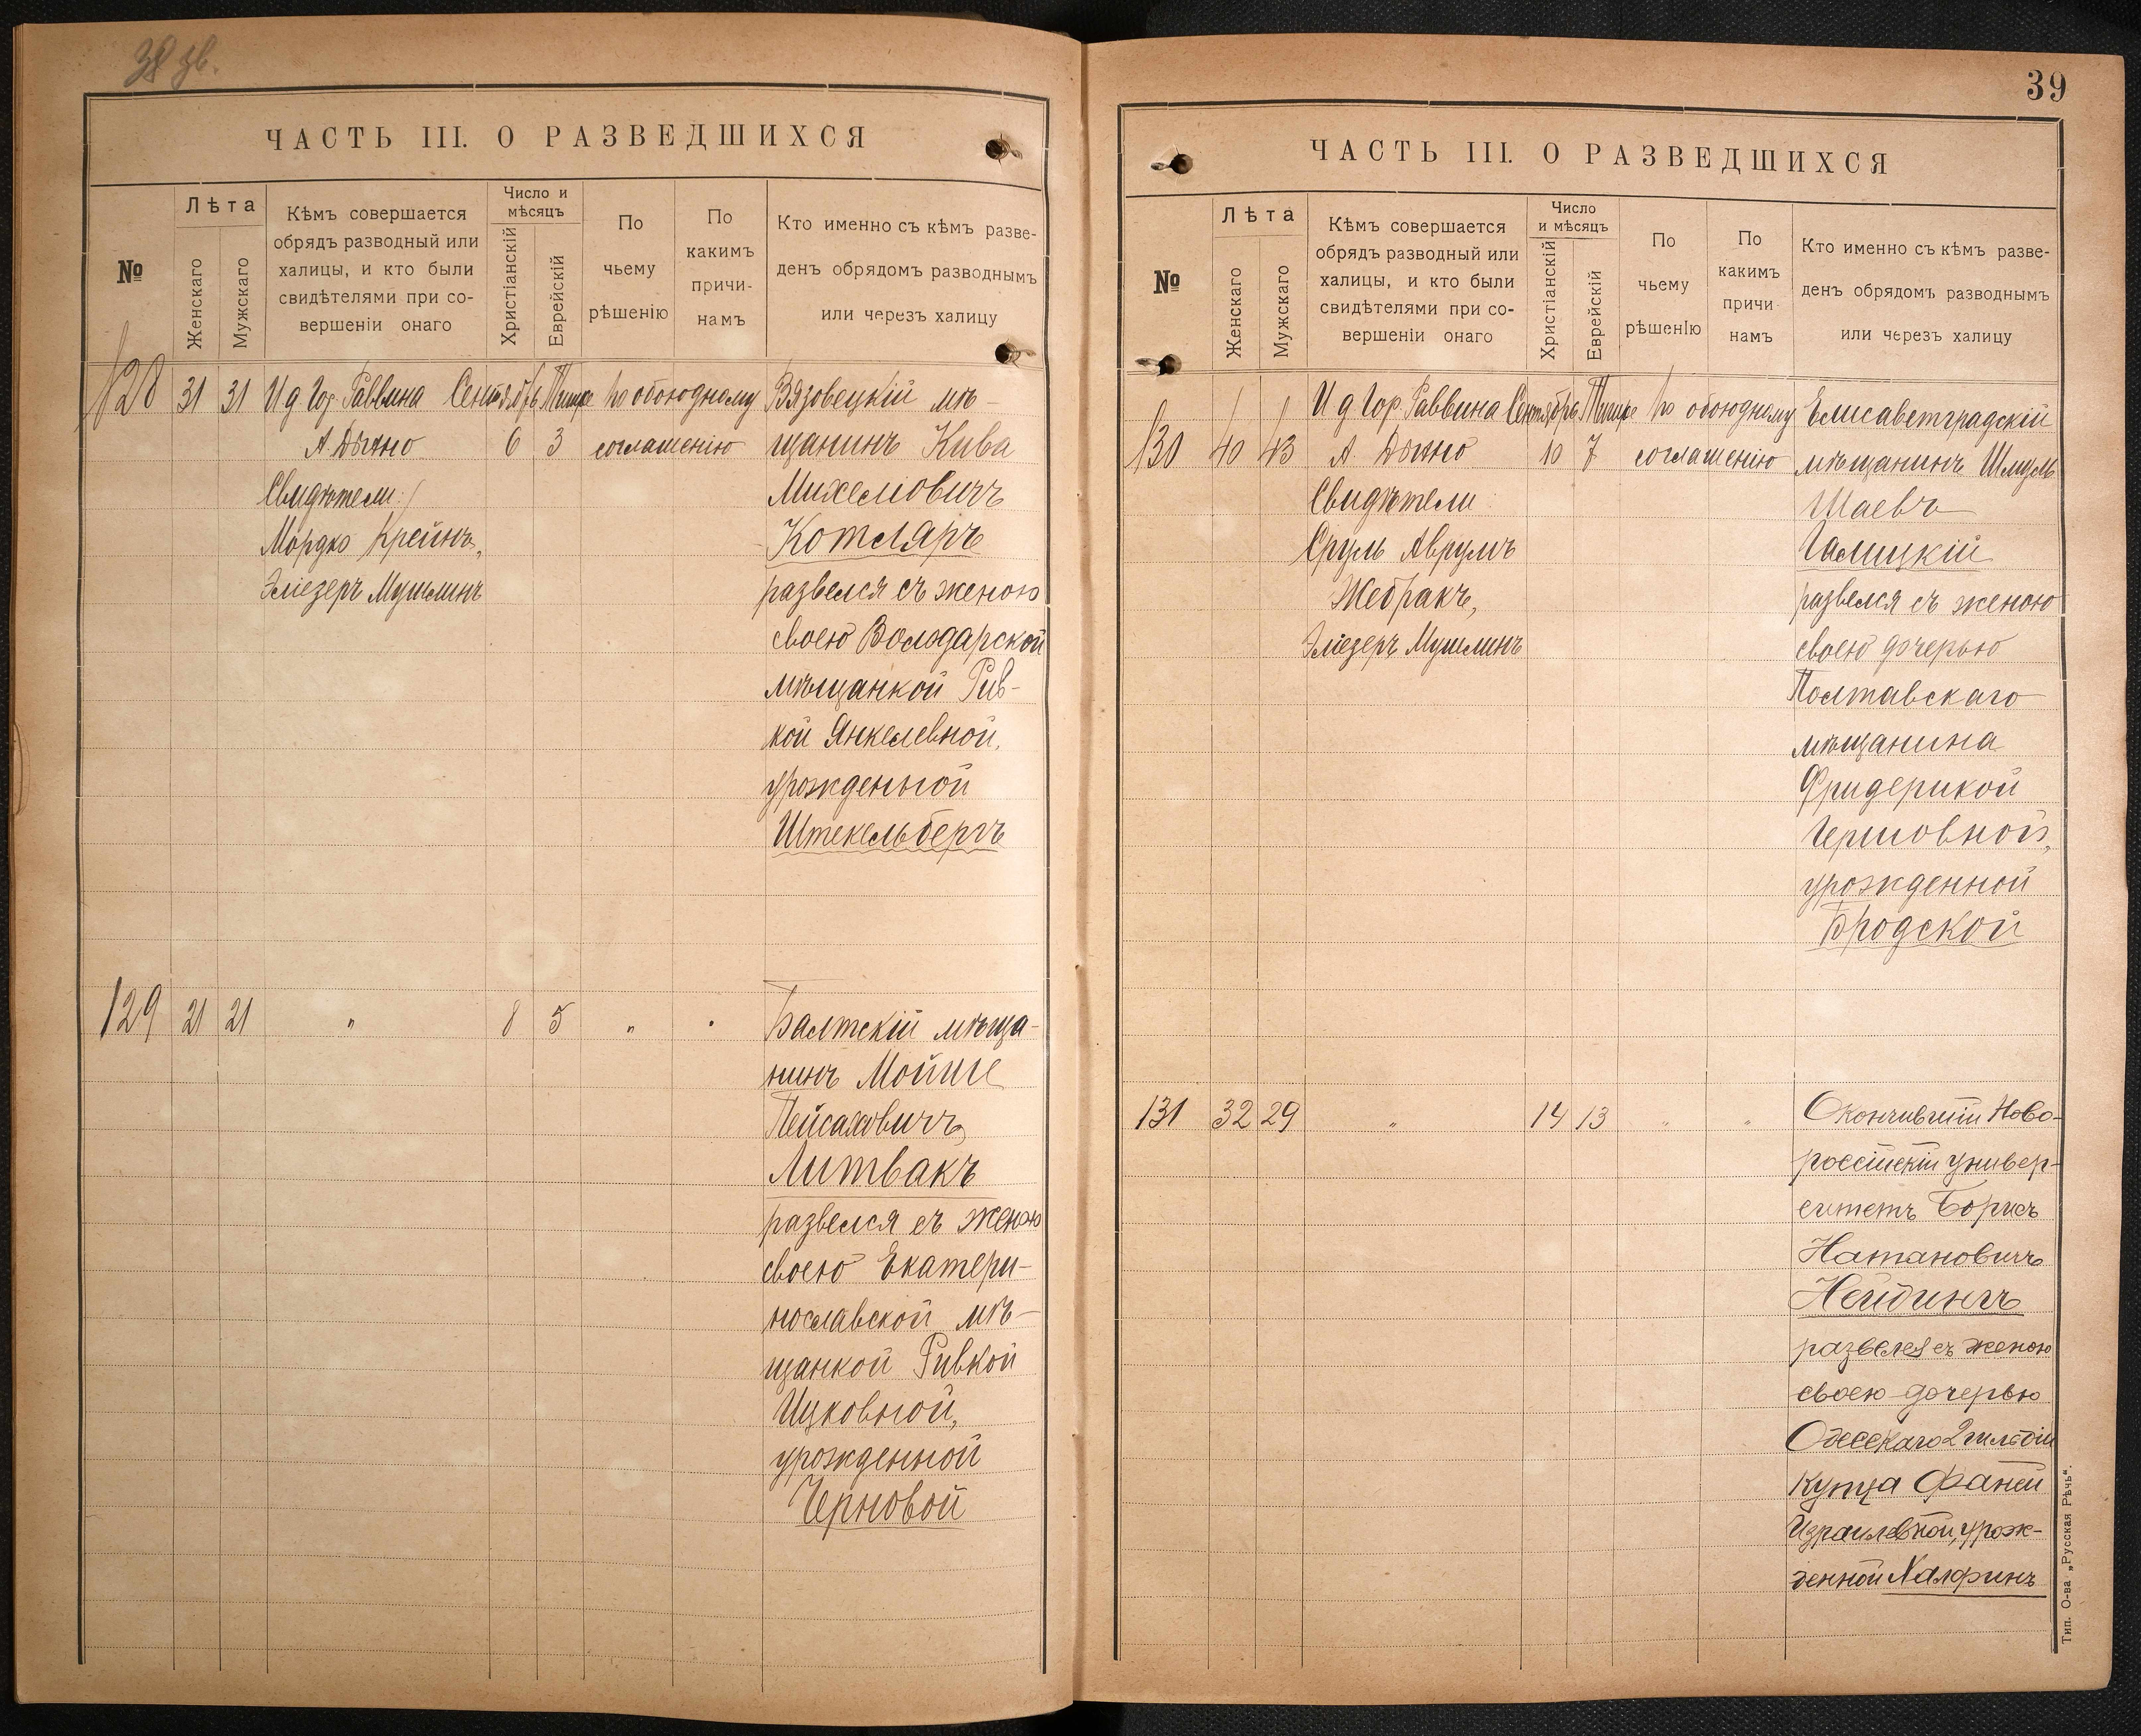 38 зв.
ЧАСТЬ III. О РАЗВЕДШИХСЯ
№
Лѣта
Женскаго
Мужскаго
Кѣмъ совершается
обрядъ разводный или
халицы, и кто были
свидѣтелями при со-
вершеніи онаго
Число и
мѣсяцъ
Христіанскій
Еврейскій
По
чьему
рѣшенію
По
какимъ
причи-
намъ
Кто именно съ кѣмъ разве-
денъ обрядомъ разводнымъ
или черезъ халицу
128 31 31 И д Гор. Раввина Сентябрь Тишре По обоюдному Вязовецкій мѣ-
А. Дыхно 6 3 соглашенію щанинъ Кива
Свидѣтели: Михелiовичъ
Мордко Крейнъ, Котляръ
Эліезеръ Мушлинъ развелся съ женою
своею Володарской
мѣщанкой Рив-
кой Янкелевной,
урожденной
Штекельбергъ
129 21 21 " 8 5 " " Балтскій мѣща-
нинъ Мойше
Пейсаховичъ
Литвакъ
развелся съ женою
своею Екатери-
нославской мѣ-
щанкой Ривкой
Ицковной,
урожденной
Черновой
39
ЧАСТЬ III. О РАЗВЕДШИХСЯ
№
Лѣта
Женскаго
Мужскаго
Кѣмъ совершается
обрядъ разводный или
халицы, и кто были
свидѣтелями при со-
вершеніи онаго
Число
и мѣсяцъ
Христіанскій
Еврейскій
По
чьему
рѣшенІю
По
какимъ
причи
намъ
Кто именно съ кѣмъ разве-
денъ обрядомъ разводнымъ
или черезъ халицу
И д Гор. Раввина Сентябрь Тишре По обоюдному Елисаветградскій
130 40 43 А Дыхно 10 7 соглашенію мѣщанинъ Шмуль
Свидѣтели: Шаевъ
Сруль Аврумъ Галицкій
Жебракъ, развелся съ женою
Эліезеръ Мушлинъ своею дочерью
Полтавскаго
мѣщанина
Фридерикой
Гершовной,
урожденной
Бродской
131 32 29 " 14 13 " " Окончившій Ново-
россійскій универ-
ситетъ Борисъ
Натановичъ
Нейдингъ
развелся съ женою
своею дочерью
Одесскаго 2 гильдіи
купца Фаней
Израилевной, урож-
денной Халфинъ
Тип. О-ва „Русская Рѣчь“.